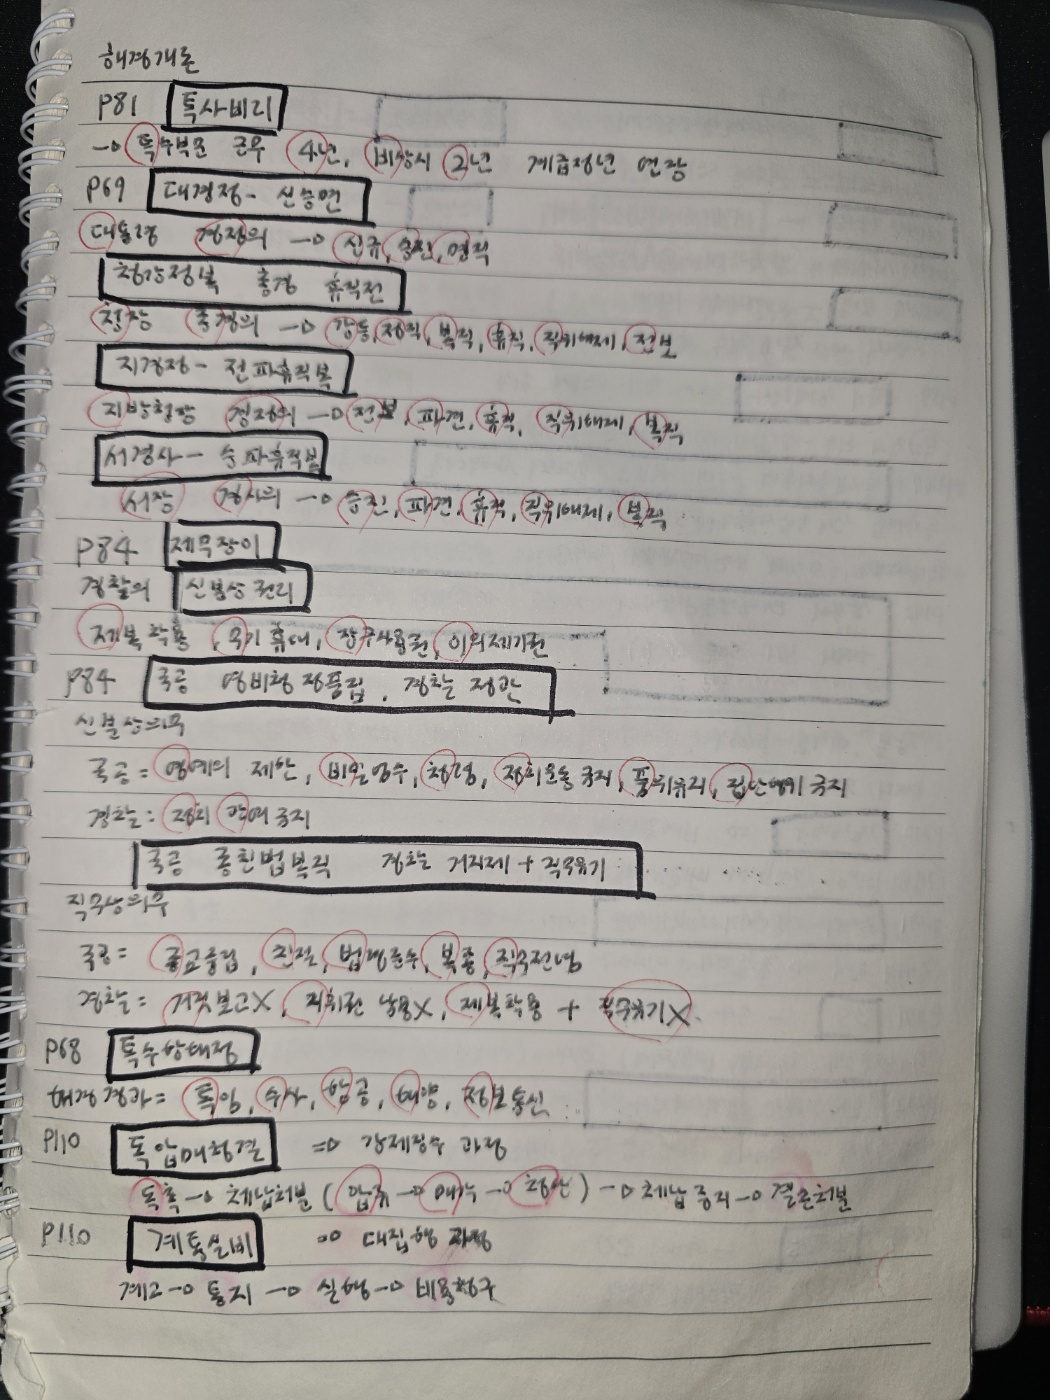 해경개론
P81 특사비리
→ 특수부문 근무 4년, 비상시 2년 계급정년 연장
P69 대경정 - 신승면
대통령 경정의 → 신규, 승진, 면직
청강정복 총경 휴직전
청장 총경의 → 강등, 정직, 복직, 휴직, 직위해제, 전보
지경정 - 전파휴직복
지방청장 경정의 → 전보, 파견, 휴직, 직위해제, 복직
서경사 - 승파휴직복
서장 경사의 → 승진, 파견, 휴직, 직위해제, 복직
P84 제무장이
경찰의 신분상 권리
제복착용, 무기휴대, 장구사용권, 이의제기권
P84 국공 영비청정품집, 경찰 정관
신분상의무
국공 = 영예의 제한, 비밀엄수, 청렴, 정치운동 금지, 품위유지, 집단행위 금지
경찰 : 정치 관여 금지
국공 종친법복직 경찰 거지제 + 직무유기
직무상의무
국공 = 종교중립, 친절, 법령준수, 복종, 직무전념
경찰 = 거짓보고X, 지휘권 남용X, 제복착용 + 직무유기X
P68 특수항해정
해경 경과 = 특임, 수사, 항공, 해양, 정보통신
P110 독압매청결 ⇒ 강제징수 과정
독촉 → 체납처분 ( 압류 → 매각 → 청산 ) → 체납중지 → 결손처분
P110 계통실비 ⇒ 대집행 과정
계고 → 통지 → 실행 → 비용청구